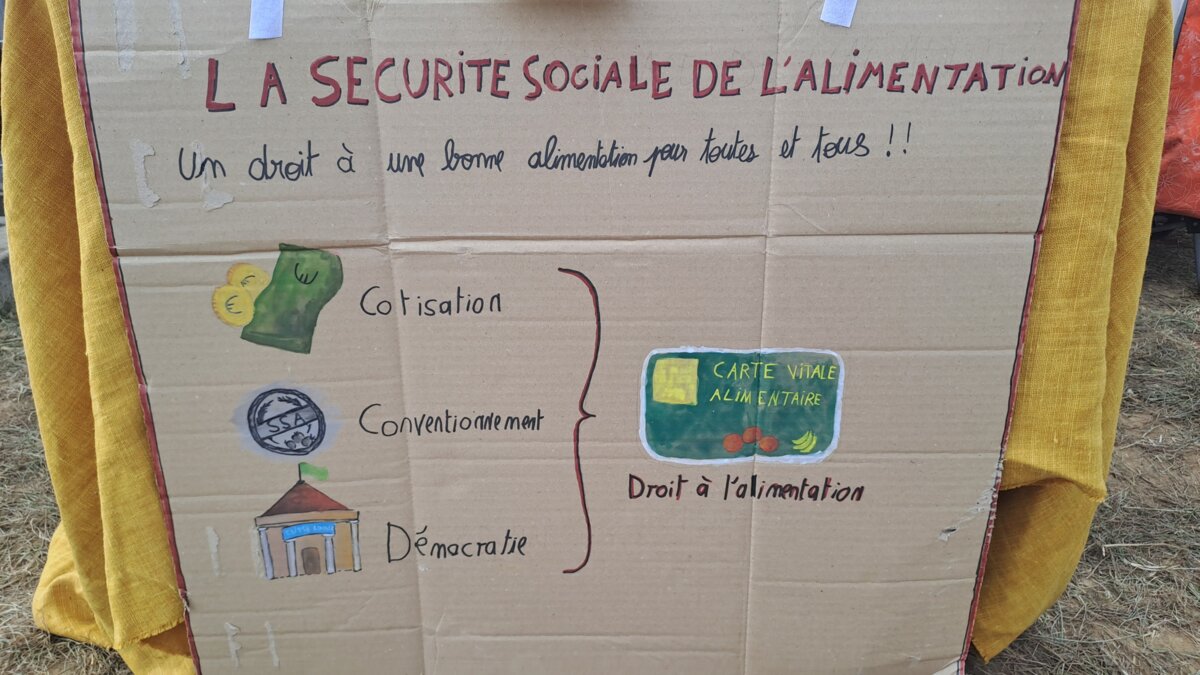 LA SECURITE SOCIALE DE L'ALIMENTATION
Un droit à une bonne alimentation pour toutes et tous !!
Cotisation
SSA
Conventionnement
Démocratie
CARTE VITALE
ALIMENTAIRE
Droit à l'alimentation